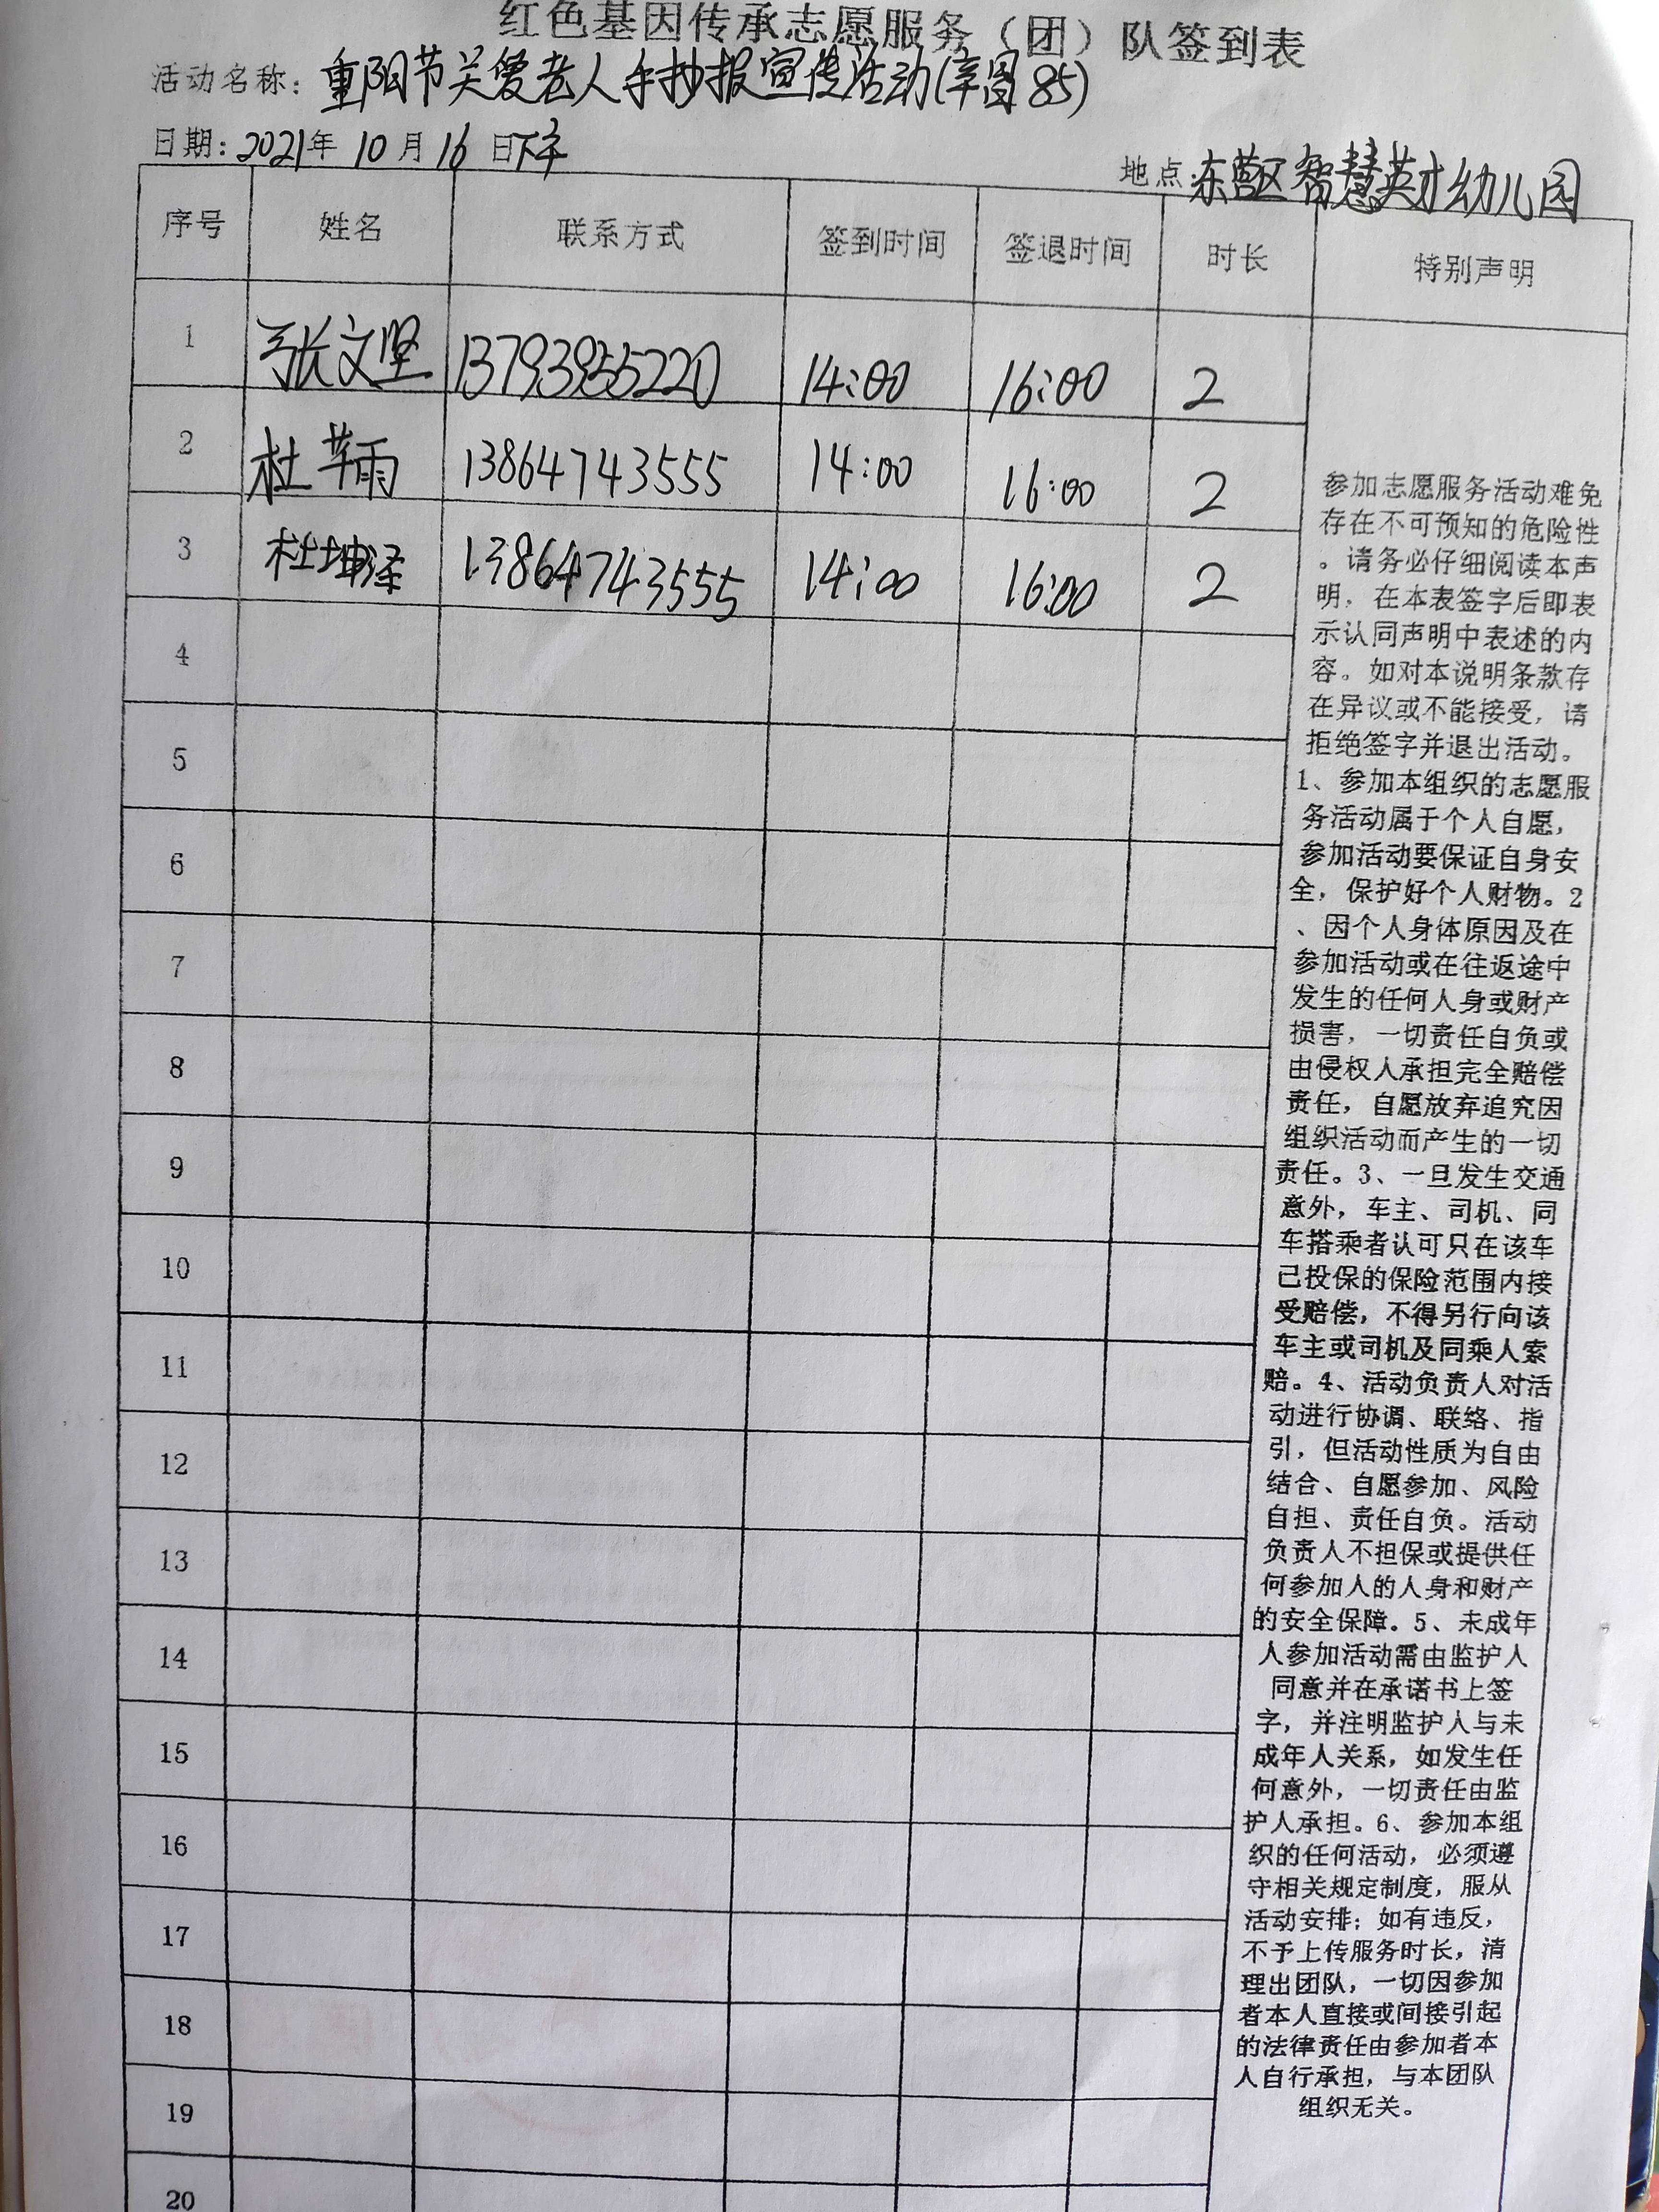 红色基因传承志愿服务（团）队签到表
活动名称：重阳节关爱老人手抄报宣传活动(辛留85)
日期：2021年 10月 16日下午
地点：东营区智慧英才幼儿园
序号 姓名 联系方式 签到时间 签退时间 时长 特别声明
1 张文坚 13793955220 14:00 16:00 2
2 杜芊雨 13864743555 14:00 16:00 2
3 杜坤泽 13864743555 14:00 16:00 2
4
5
6
7
8
9
10
11
12
13
14
15
16
17
18
19
20
参加志愿服务活动难免
存在不可预知的危险性
。请务必仔细阅读本声
明，在本表签字后即表
示认同声明中表述的内
容。如对本说明条款存
在异议或不能接受，请
拒绝签字并退出活动。
1、参加本组织的志愿服
务活动属于个人自愿，
参加活动要保证自身安
全，保护好个人财物。2
、因个人身体原因及在
参加活动或在往返途中
发生的任何人身或财产
损害，一切责任自负或
由侵权人承担完全赔偿
责任，自愿放弃追究因
组织活动而产生的一切
责任。3、一旦发生交通
意外，车主、司机、同
车搭乘者认可只在该车
已投保的保险范围内接
受赔偿，不得另行向该
车主或司机及同乘人索
赔。4、活动负责人对活
动进行协调、联络、指
引，但活动性质为自由
结合、自愿参加、风险
自担、责任自负。活动
负责人不担保或提供任
何参加人的人身和财产
的安全保障。5、未成年
人参加活动需由监护人
同意并在承诺书上签
字，并注明监护人与未
成年人关系，如发生任
何意外，一切责任由监
护人承担。6、参加本组
织的任何活动，必须遵
守相关规定制度，服从
活动安排；如有违反，
不予上传服务时长，清
理出团队，一切因参加
者本人直接或间接引起
的法律责任由参加者本
人自行承担，与本团队
组织无关。